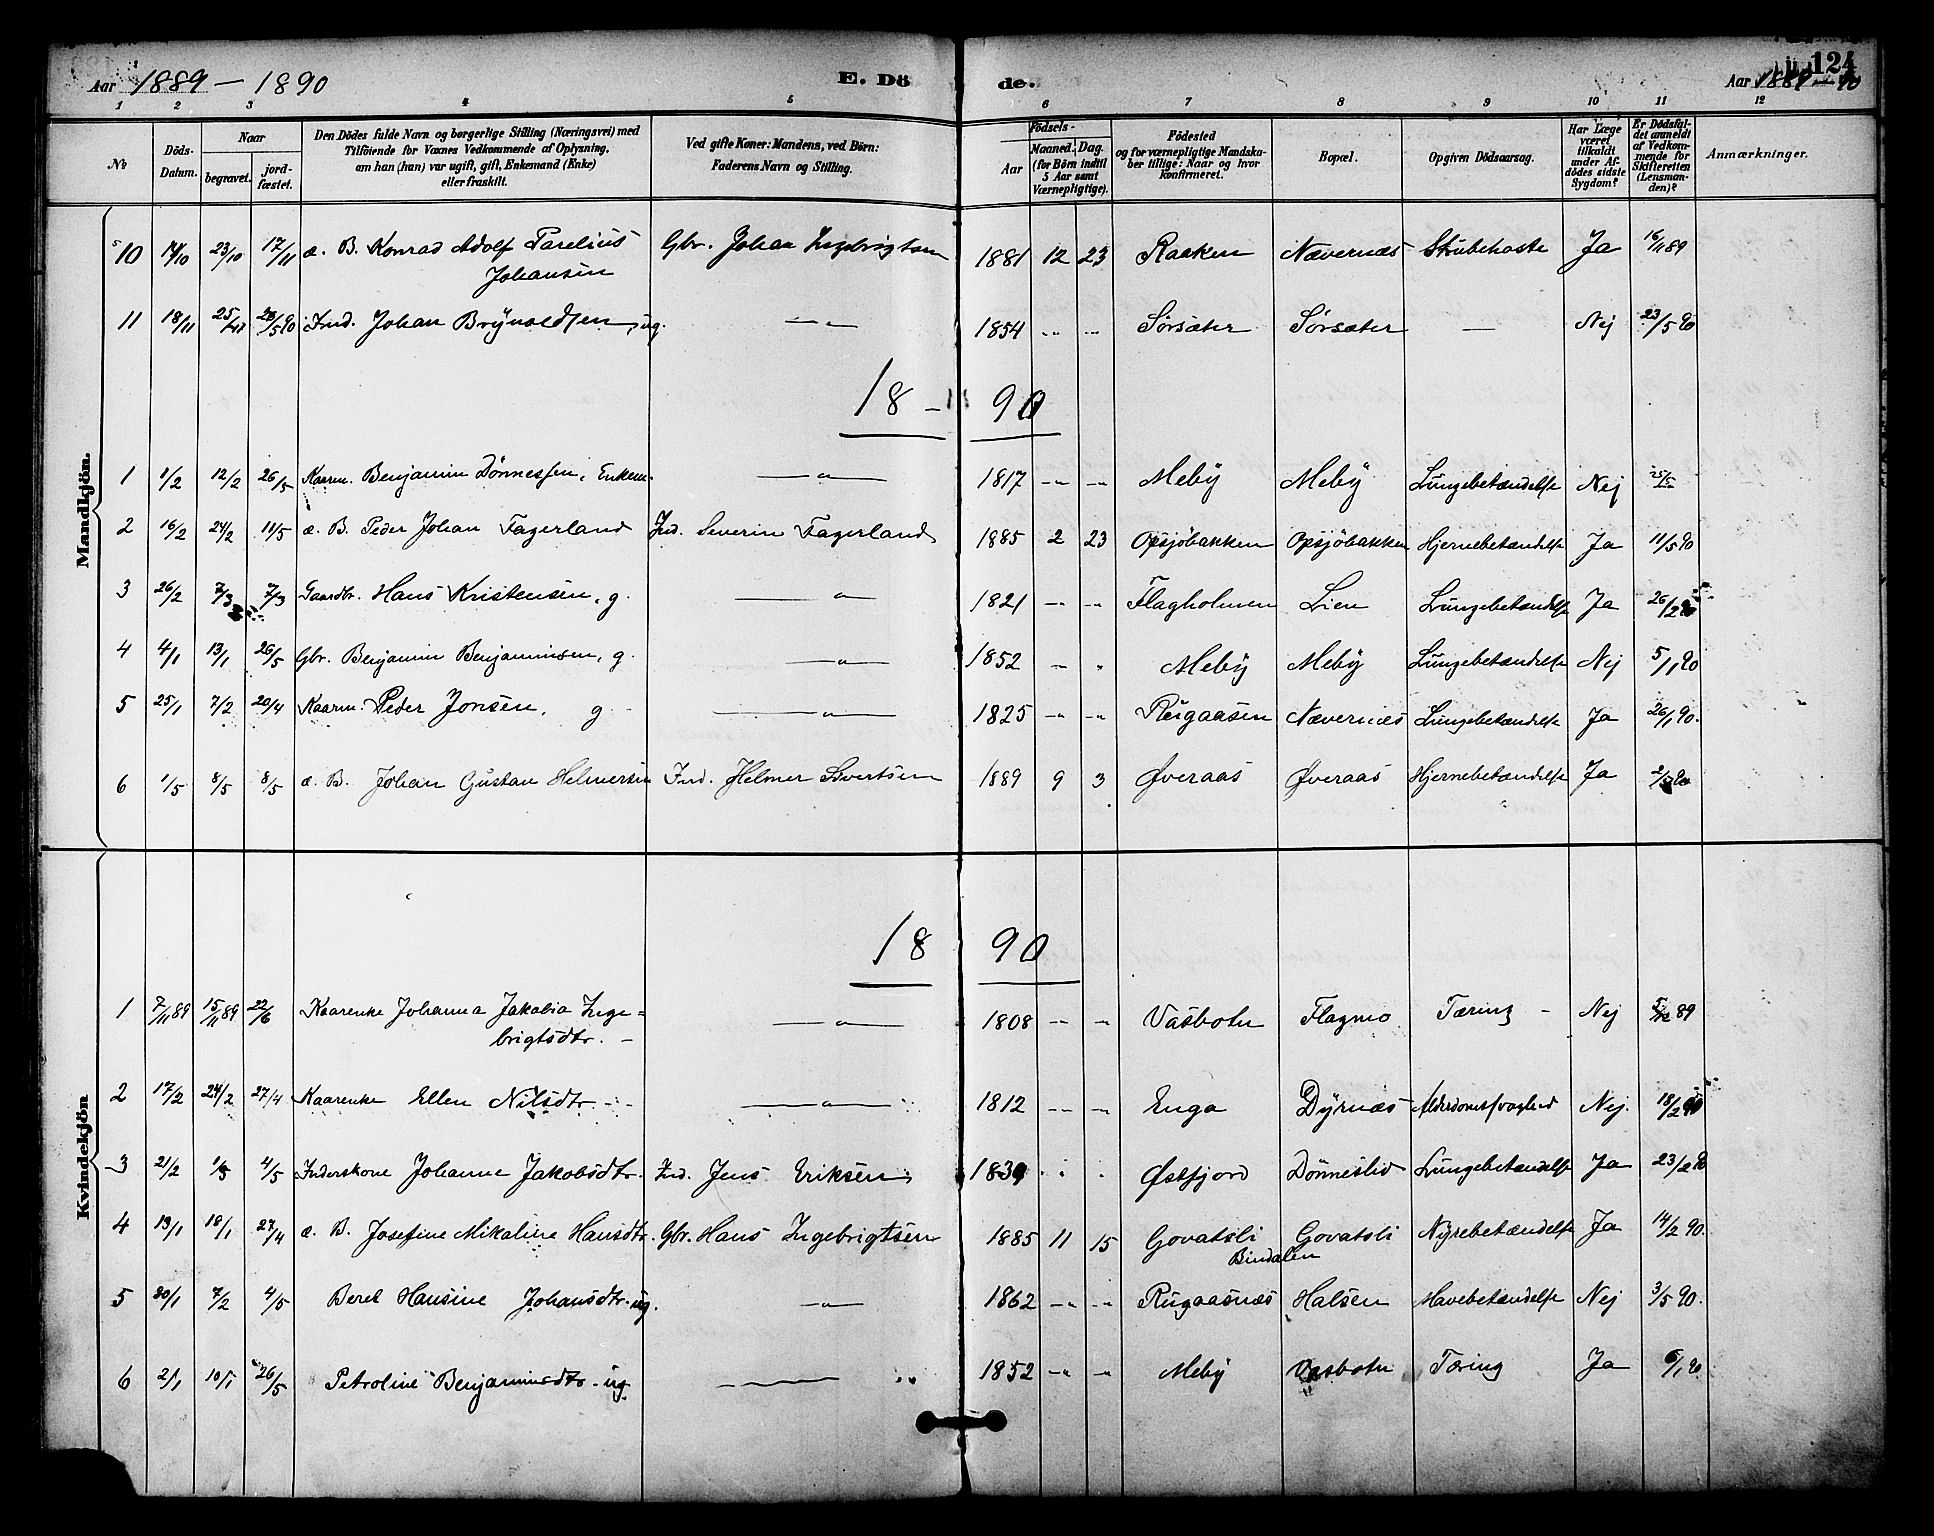 124
Aar 1889 - 1890 E. Döde. Aar 1889 - 90
1 2 3 4 5 6 7 8 9 10 11 12
No
Döds-Datum.
Naar
begravet.
jordfæstet.
Den Dödes fulde Navn og borgerlige Stilling (Næringsvei) med
Tilföiende for Voxnes Vedkommende af Oplysning,
om han (hun) var ugift, gift, Enkemand (Enke)
eller fraskilt.
Ved gifte Koner: Mandens, ved Börn:
Faderens Navn og Stilling.
Födsels-
Aar
Maaned. Dag.
(for Börn indtil
5 Aar samt
Værnepligtige).
Födested
og for værnepligtige Mandskaber tillige: Naar og hvor
konfirmeret.
Bopæl.
Opgiven Dödsaarsag.
Har Læge
været
tilkaldt
under Afdödes sidste
Sygdom?
Er Dödsfaldet anmeldt
af Vedkommende for
Skifteretten
(Lensmanden)?
Anmærkninger.
Mandkjön.
10 14/10 23/10 17/11 æ. B. Konrad Adolf Parelius Gbr. Johan Ingebrigtsen 1881 12 23 Raaken Nævernæs Strubehoste Ja 16/11 89
Johansen
11 18/11 25/11 23/5 90 Ind. Johan Brynoldsen, ug. —"— 1854 -"- -"- Sörsæter Sörsæter — Nej 23/5 90
18 - 90
1 1/2 12/2 26/5 Kaarm. Benjamin Dönnessen, Enkem. —"— 1817 -"- -"- Meby Meby Lungebetændelse Nej 25/5
2 16/2 24/2 11/5 æ. B. Peder Johan Fagerland Ind. Severin Fagerland 1885 2 23 Opsjöbakken Opsjöbakken Hjernebetændelse Ja 11/5 90
3 26/2 7/3 7/3 Gaardbr. Hans Kristensen, g. —"— 1821 -"- -"- Flagholmen Lien Lungebetændelse Ja 26/2 90
4 4/1 13/1 26/5 Gbr. Benjamin Benjaminsen, g. —"— 1852 -"- " Meby Meby Lungebetændelse Nej 5/1 90
5 25/1 7/2 20/4 Kaarm. Peder Jonsen, g —"— 1825 -"- -"- Rugaasen Nævernæs Lungebetændelse Ja 26/1 90.
6 1/5 8/5 8/5 æ. B. Johan Gustav Helmersen Ind. Helmer Sivertsen 1889 9 3 Øveraas Øveraas Hjernebetændelse Ja 2/5 90
Kvindekjön
18 90
1 7/11 89 15/11 89 22/6 Kaarenke Johanna Jakobia Inge= —"— 1808 -"- -"- Vasbotn Flagmo Tæring - Nej 5/12 89
brigtsdtr. -
2 17/2 24/2 27/4 Kaarenke Ellen Nilsdtr. —"— 1812 -"- -"- Enga Dyrnæs Alderdomssvaghed Nej. 18/2 90
3 21/2 1/3 4/5 Inderskone Johanne Jakobsdtr. Ind. Jens Eriksen 1839 " " Østfjord Dönneslid Lungebetændelse Ja 23/2 90
4 13/1 18/1 27/4 æ. B. Josefine Mikaline Hansdtr. Gbr. Hans Ingebrigtsen 1885 11 15 Govatsli Govatsli Nyrebetændelse Ja 14/2 90.
Bindalen
5 30/1 7/2 4/5 Berel Hansine Johansdtr. ug. —"— 1862 -"- -"- Rugaasnæs Halsen Mavebetændelse Nej 3/5 90.
6 2/1 10/1 26/5 Petroline Benjaminsdtr. ug. — " 1852 -"- -"- Meby Vasbotn Tæring Ja 6/1 90